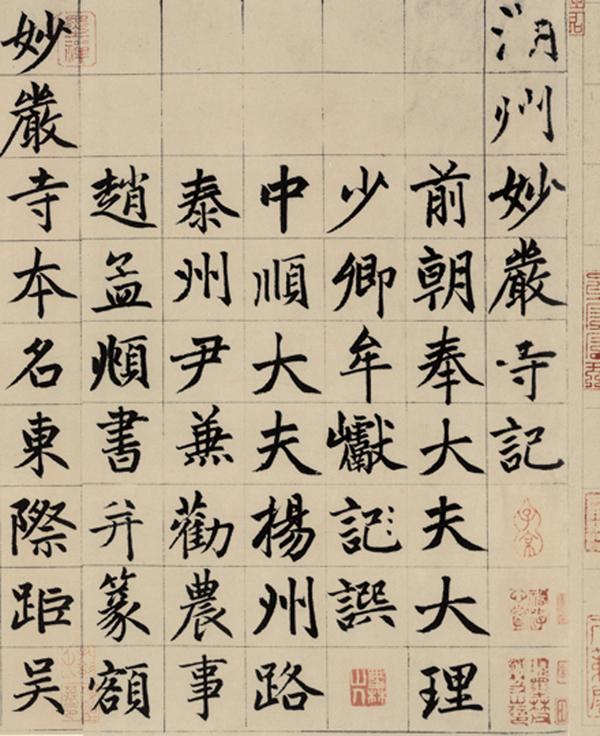 湖州妙嚴寺記
前朝奉大夫大理
少卿牟巘記撰
中順大夫揚州路
泰州尹兼勸農事
趙孟頫書并篆額
妙嚴寺本名東際距吳